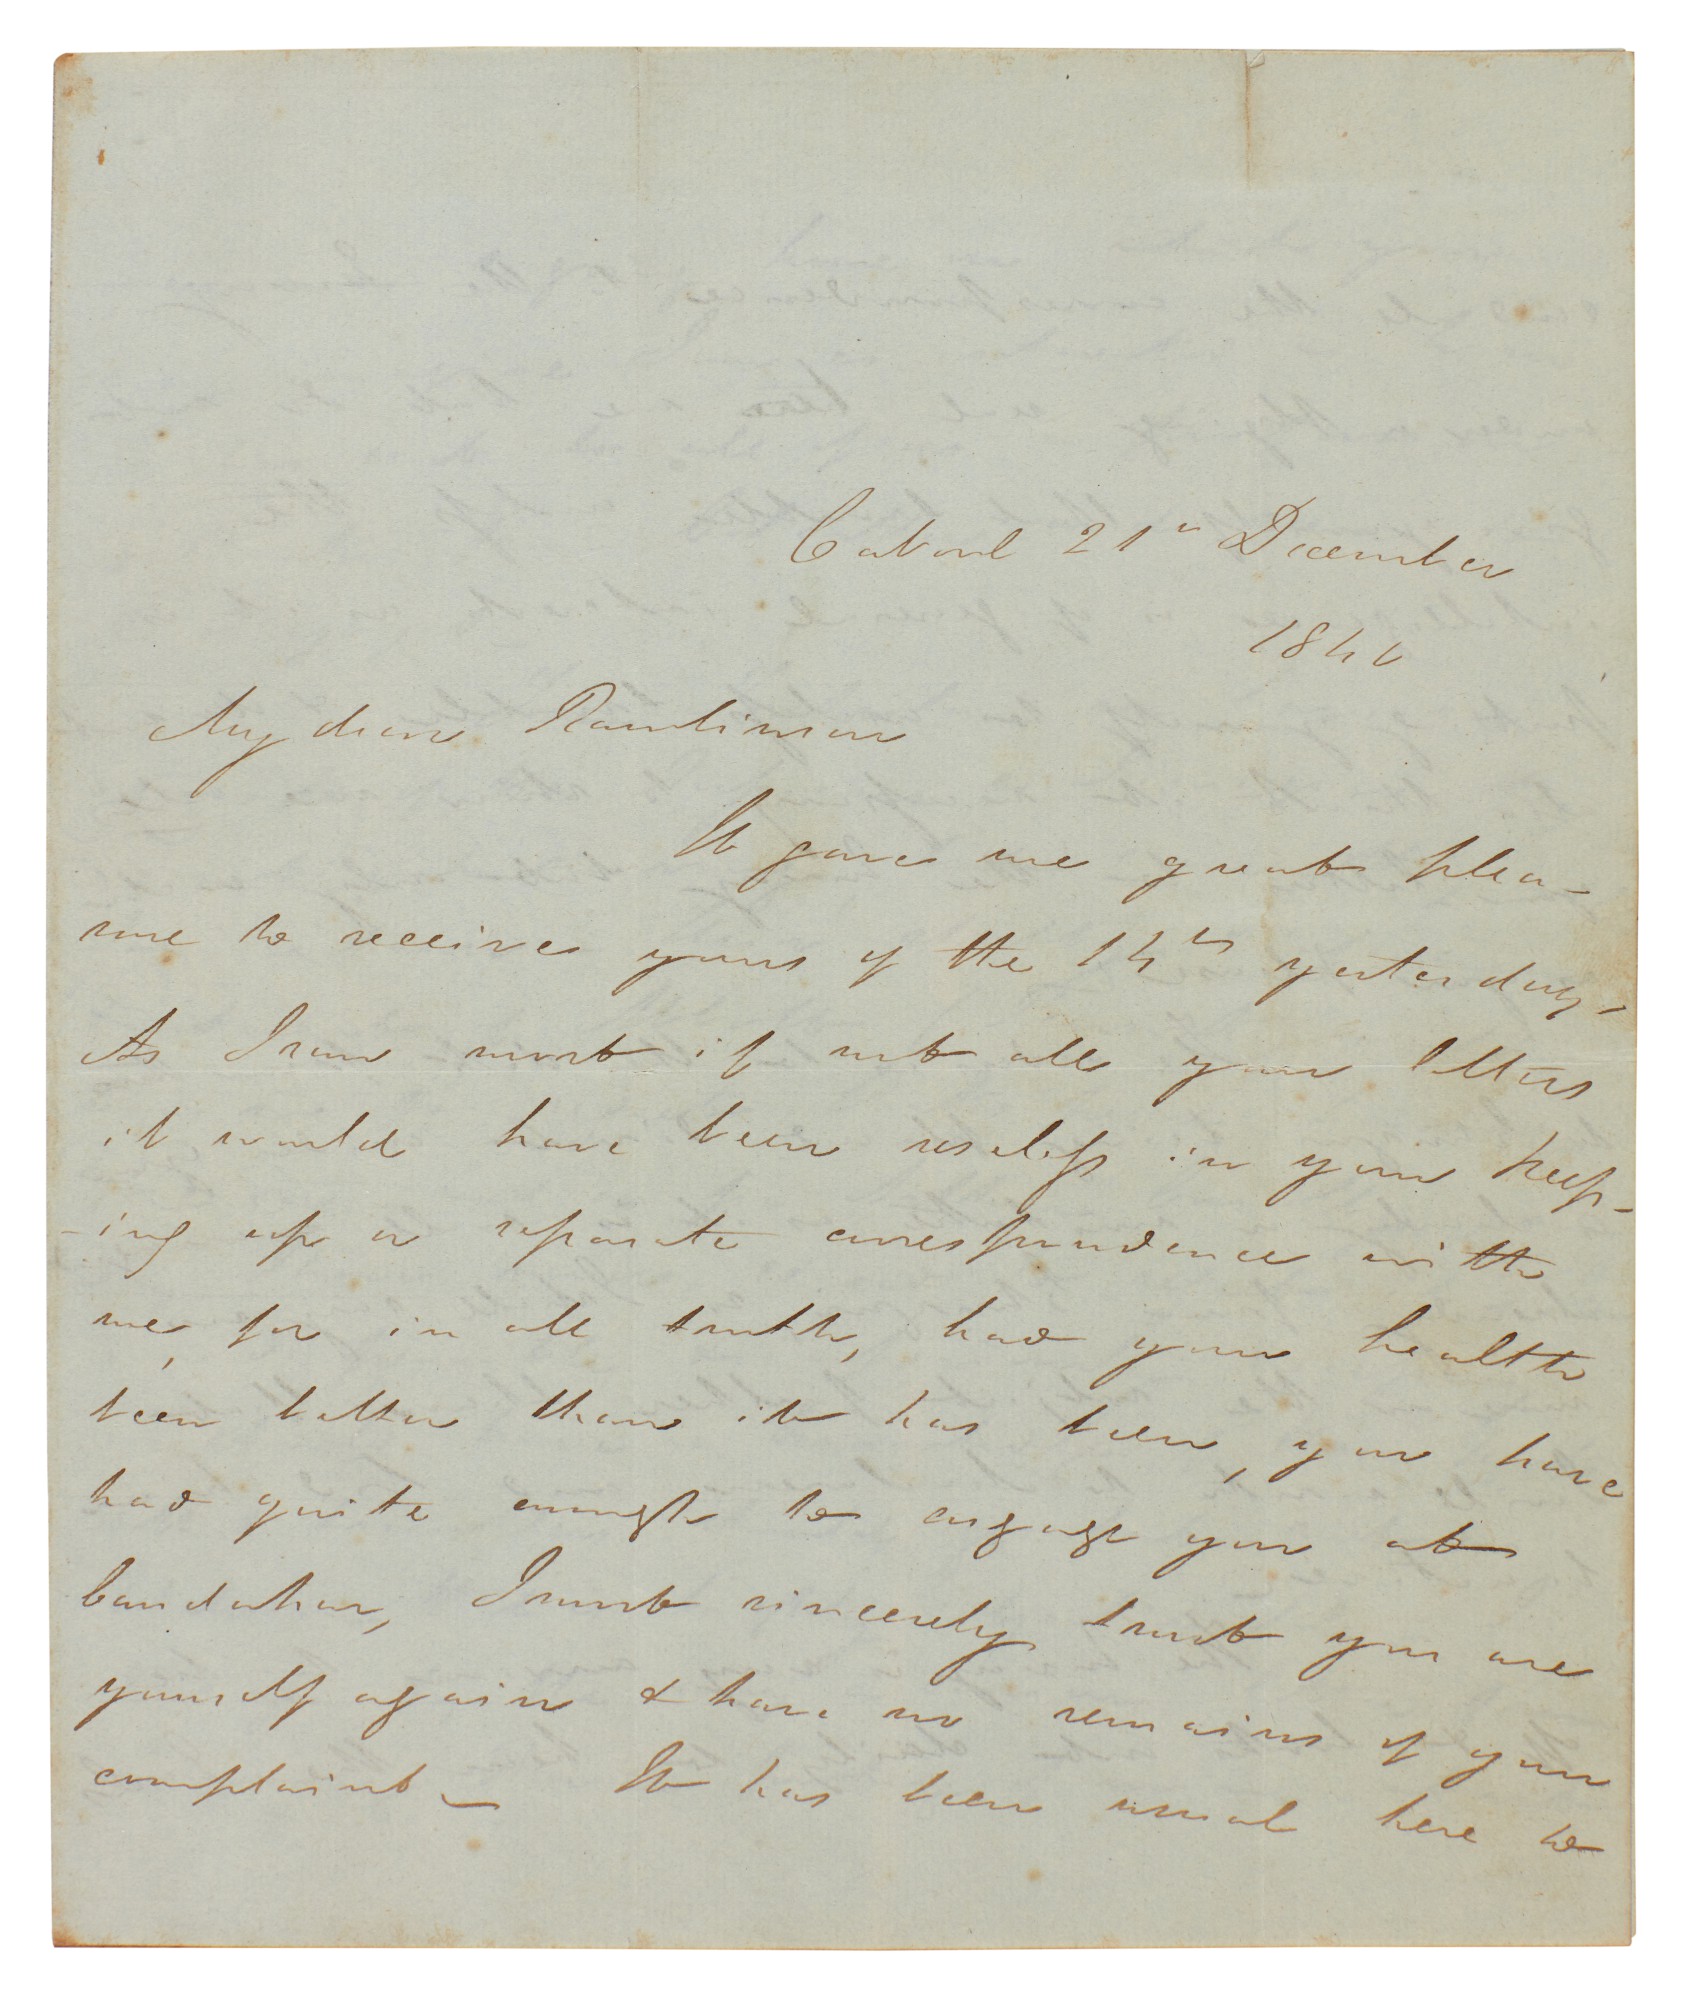 Cabool 21st December
1840
My dear Rawlinson
It gave me great plea-
sure to receive yours of the 14th yesterday.
As I saw most if not all your letters
it would have been useless in your keep-
-ing up a separate correspondence with
me, for in all truth, had your health
been better than it has been, you have
had quite enough to engage you at
Candahar, I most sincerely trust you are
yourself again & have no remains of your
complaint – It has been usual here to